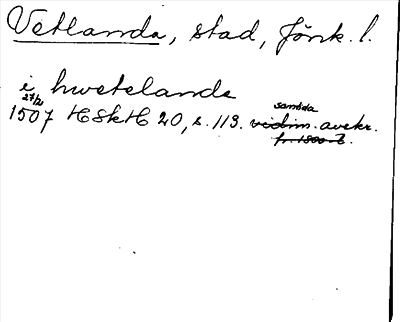 Vetlanda, stad, Jönk. l.
i hwetelande
27/2 samtida
1507 HSkH 20, s. 113. vidim. avskr.
fr. 1500-t.